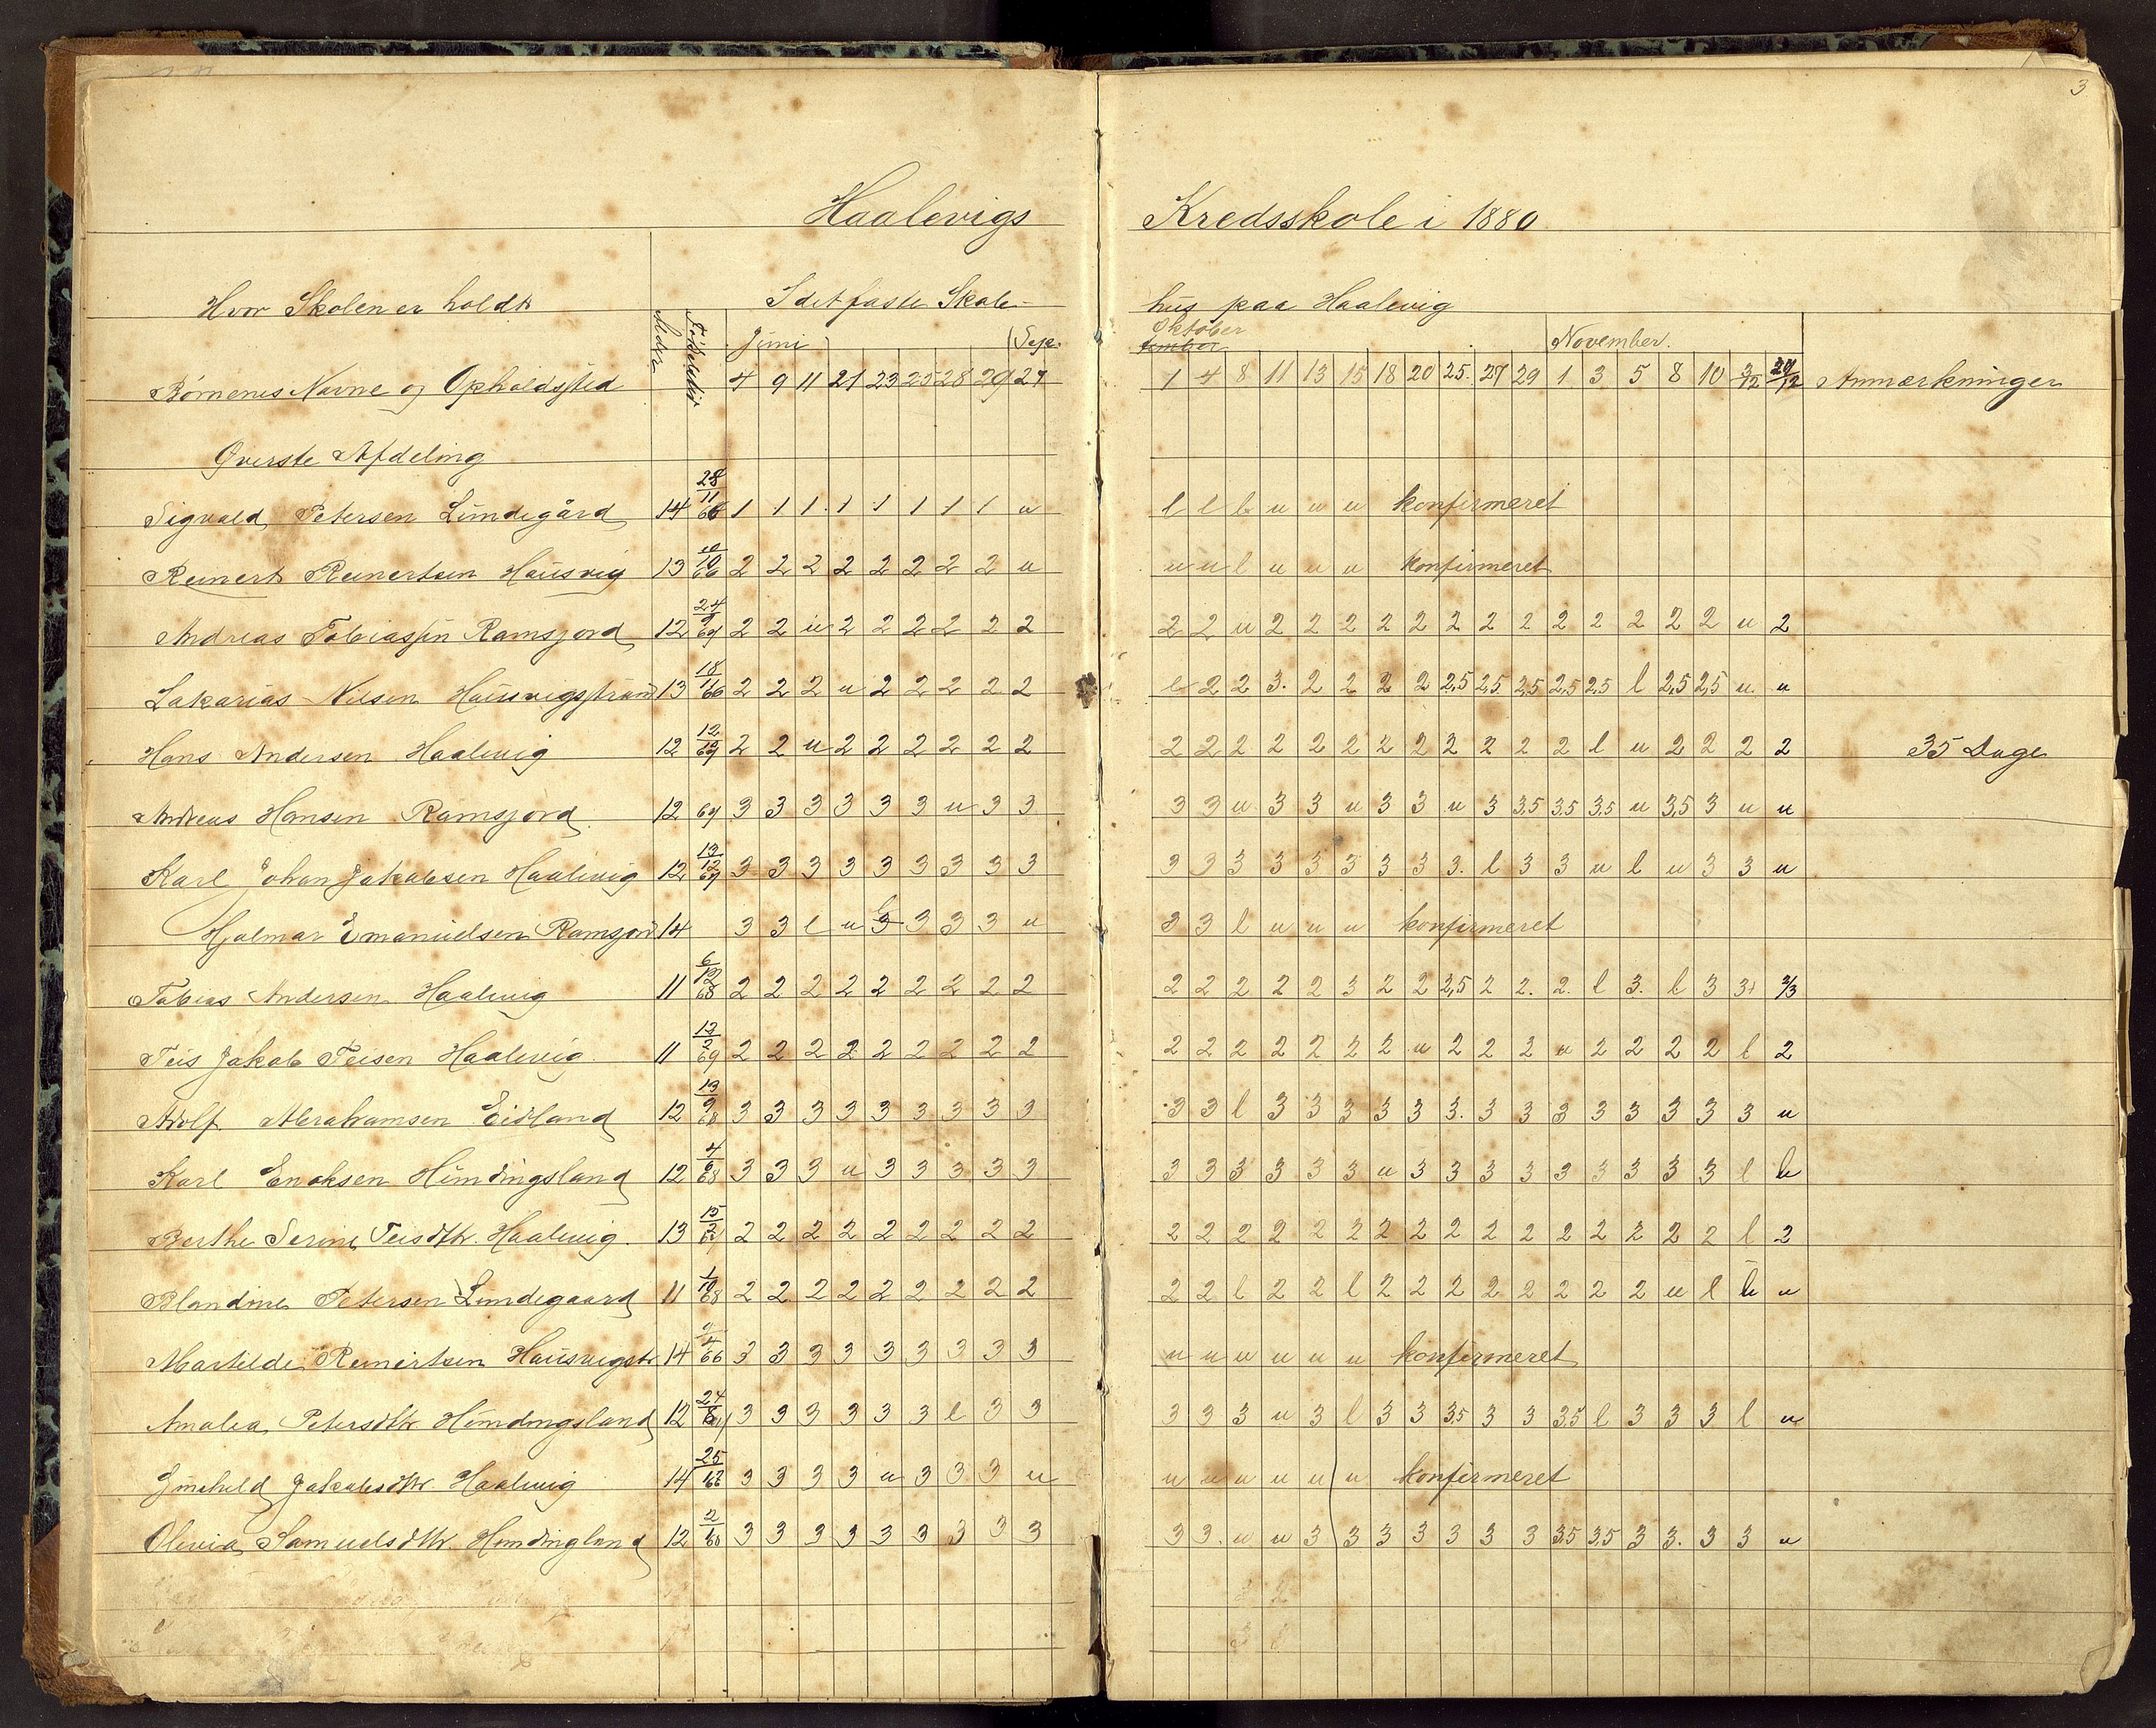 3
Haalevigs Kredsskole i 1880
Hvor Skolen er holdt I det faste Skole- hus paa Haalevig
Alder Fødselstid Juni Sep. tember Oktober November.
Børnenes Navne og Opholdssted 4 9 11 21 23 25 28 29 27 1 4 8 11 13 15 18 20 25. 27 29 1 3 5 8 10 3/12 20/12 Anmærkninger
Øverste Afdeling
Sigvald Petersen Lundegård 14 28/11 66 1 1 1 1 1 1 1 1 u l l l u u u konfirmeret
Reinert Reinertsen Hausvig 13 10/10 66 2 2 2 2 2 2 2 2 u u u l u u u konfirmeret
Andreas Tobiassen Ramsjord 12 24/9 67 2 2 u 2 2 2 2 2 2 2 2 u 2 2 2 2 2 2 2 2 2 2 2 2 2 u 2
Sakarias Nilsen Hausvigstrand 13 18/11 66 2 2 2 u 2 2 2 2 2 l 2 2 3. 2 2 2 2 2,5 2,5 2,5 2,5 2,5 l 2,5 2,5 u. u
Hans Andersen Haalevig 12 67 2 2 u 2 2 2 2 2 2 2 2 2 2 2 2 2 2 2 2 2 2 l u 2 2 2 2 35 Dage
Andreas Hansen Ramsjord 12 67 3 3 3 3 3 3 u 3 3 3 3 u 3 3 u 3 3 u 3 3,5 3,5 3,5 u 3,5 3 u u
Karl Johan Jakobsen Haalevig 12 13/12 67 3 3 3 3 3 3 3 3 3 3 3 3 3 3 3 3 3 3. l 3 3 u l u 3 3 u
Hjalmar Emanuelsen Ramsjord 14 3 3 l u 3 3 3 3 u 3 3 l u u u konfirmeret
Tobias Andersen Haalevig 11 6/12 68 2 2 2 2 2 2 2 2 2 2 2 2 2 2 3 2 2 2,5 2 2. 2. l 3. l 3 3+ 2/3
Teis Jakob Teisen Haalevig 11 12/2 69 2 2 2 2 2 2 2 2 2 2 2 2 2 2 2 2 u 2 2 2 u 2 2 2 2 l 2
Adolf Abrahamsen Eidland 12 13/9 68 3 3 3 3 3 3 3 3 3 3 3 l 3 3 3 3 3 3. 3 3 3 3 3 3 3 3 u
Karl Enoksen Hundingsland 12 4/6 68 3 3 3 u 3 3 3 3 3 3 3 3 3 3 3 u 3 3 3 3 3 3 3 3 3 l l
Berthe Serine Teisdtr. Haalevig. 13 15/2 67 2 2 2 2 2 2 2 2 2 2 2 2 2 2 2 2 2 2 2 2 2 2 2 2 2 l 2
Blandine Petersen Lundegaard 11 1/10 68 2 2 2 2 2 2 2 2 2 2 2 l 2 2 l 2 2 2 2 2 2 2 2 u l l u
Martilde Reinertsen Hausvigstr 14 66 3 3 3 3 3 3 3 3 3 u u u u u u konfirmeret
Amalia Petersdtr Hundingsland 12 24/8 3 3 3 3 3 3 l 3 3 3 3 3 u 3 l 3 3 3,5 3 3 3,5 l 3 3 3 l u
Gunhild Jakobsdtr. Haalevig 14 3 3 3 3 u 3 3 3 u u u u u u u konfirmeret
Olevia Samuelsdtr. Hundingland 12 68 3 3 3 3 3 3 3 3 3 3 3. u u 3 3 3 3 3 3 3 3,5 3,5 3 3. 3 3 u